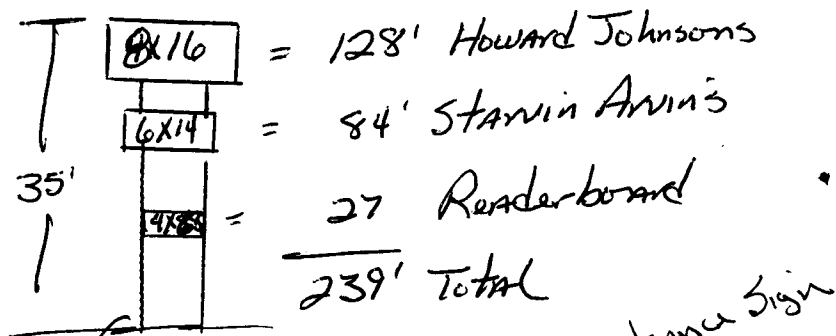 8x16 = 128' Howard Johnsons
6X14 = 84' Starvin Arvin's
35'
= 27 Readerboard
239' Total
Sign